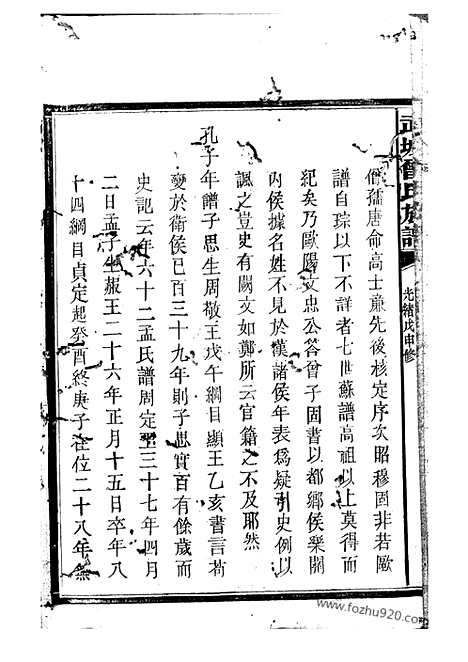 武城曾氏族譜
光緒戊申修
僧孺唐命高士廉先後核定序次昭穆固非若歐
譜自琮以下不詳者七世蘇譜高祖以上莫得而
紀矣乃歐陽文忠公答曾子固書以都鄉侯樂關
內侯據名姓不見於漢諸侯年表為疑引史例以
諷之豈史有闕文如鄭所云官籍之不及耶然
孔子年譜子思生周敬王戊午綱目顯王乙亥書言苟
變於衛侯已百三十九年則子思實百有餘歲而
史記云年六十二孟氏譜周定王三十七年四月
二日孟子生赧王二十六年正月十五日卒年八
十四綱目貞定起癸酉終庚子在位二十八年無
www.fozhu920.com